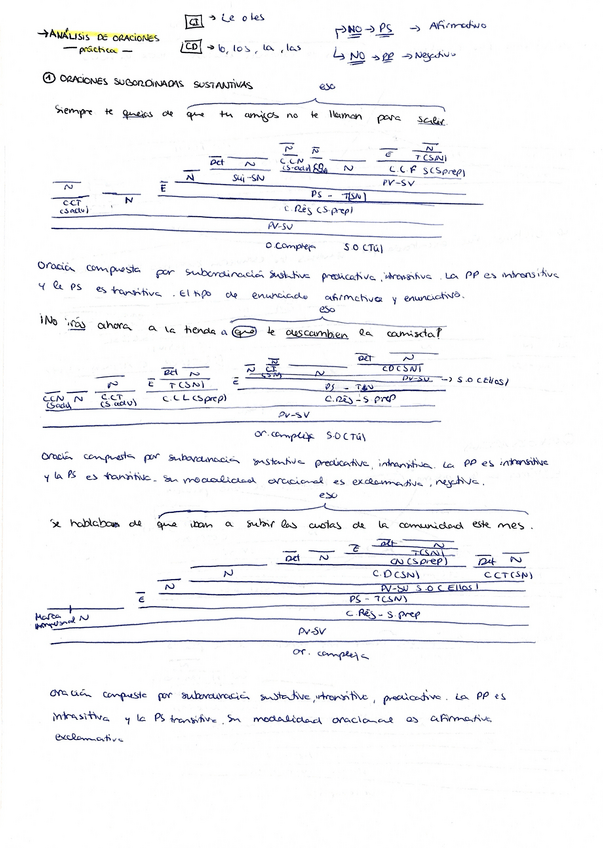 →ANÁLISIS DE ORACIONES
— práctica —
CI → Le o les
CD → lo, los, la, las
→ NO → PS → Afirmativo
↳ NO → PP → Negativo
① ORACIONES SUBORDINADAS SUSTANTIVAS
eso
Siempre te quejas de que tu amigos no te llaman para salir.
N
Det N
N N
E N
T(SN)
N
Suj-SN
C.CN
(S.adv)
N
C.C.F S(Sprep)
PV-SV
N
CCT
(S.adv)
N
E
PS - T(SN)
C.Rég (S.prep)
PV-SV
O.Compleja S.O(Tú)
Oración compuesta por subordinación sustativa predicativa, intransitiva. La PP es intransitiva
y la PS es transitiva. El tipo de enunciado afirmativa y enunciativo.
eso
¡No irás ahora a la tienda a que te descambien la camiseta!
Det N
N
Det N
CD(SN)
CCN N
(S.adv)
N
C.CT
(S.adv)
E T(SN)
C.C.L (S.prep)
E
N
PV-SV → S.O(Ellos)
PS - TSN
C.Rég - S.prep
PV-SV
or. compleja S.O(Tú)
Oración compuesta por subordinación sustantiva predicativa, intransitiva. La PP es intransitiva
y la PS es transitiva. Su modalidad oracional es exclamativa, negativa.
eso
Se hablaban de que iban a subir las cuotas de la comunidad este mes.
Det N
E T(SN)
Det N CN(S.prep) Det N
N C.D(SN) CCT(SN)
N PV-SV S.O(Ellos)
E PS - T(SN)
Marca
impersonal N
C.Rég - S.prep
PV-SV
or. compleja
Oración compuesta por subordinación sustativa, intransitiva, predicativa. La PP es
intrasitiva y la PS transitiva. Su modalidad oracional es afirmativa
exclamativa